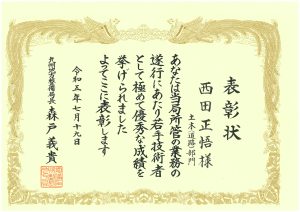 表彰状
土木道路部門
西田正悟様
あなたは当局所管の業務の
遂行にあたり若手技術者
として極めて優秀な成績を
挙げられました
よってここに表彰します
令和五年七月十九日
九州地方整備局長 森戸義貴